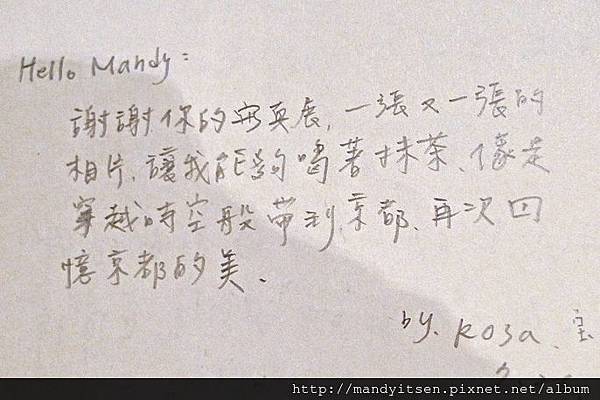 Hello Mandy:
謝謝你的寫真展,一張又一張的
相片,讓我能夠喝著抹茶、像是
穿越時空般帶到京都、再次回
憶京都的美、
by. Rosa、宝
http://mandyitsen.pixnet.net/album